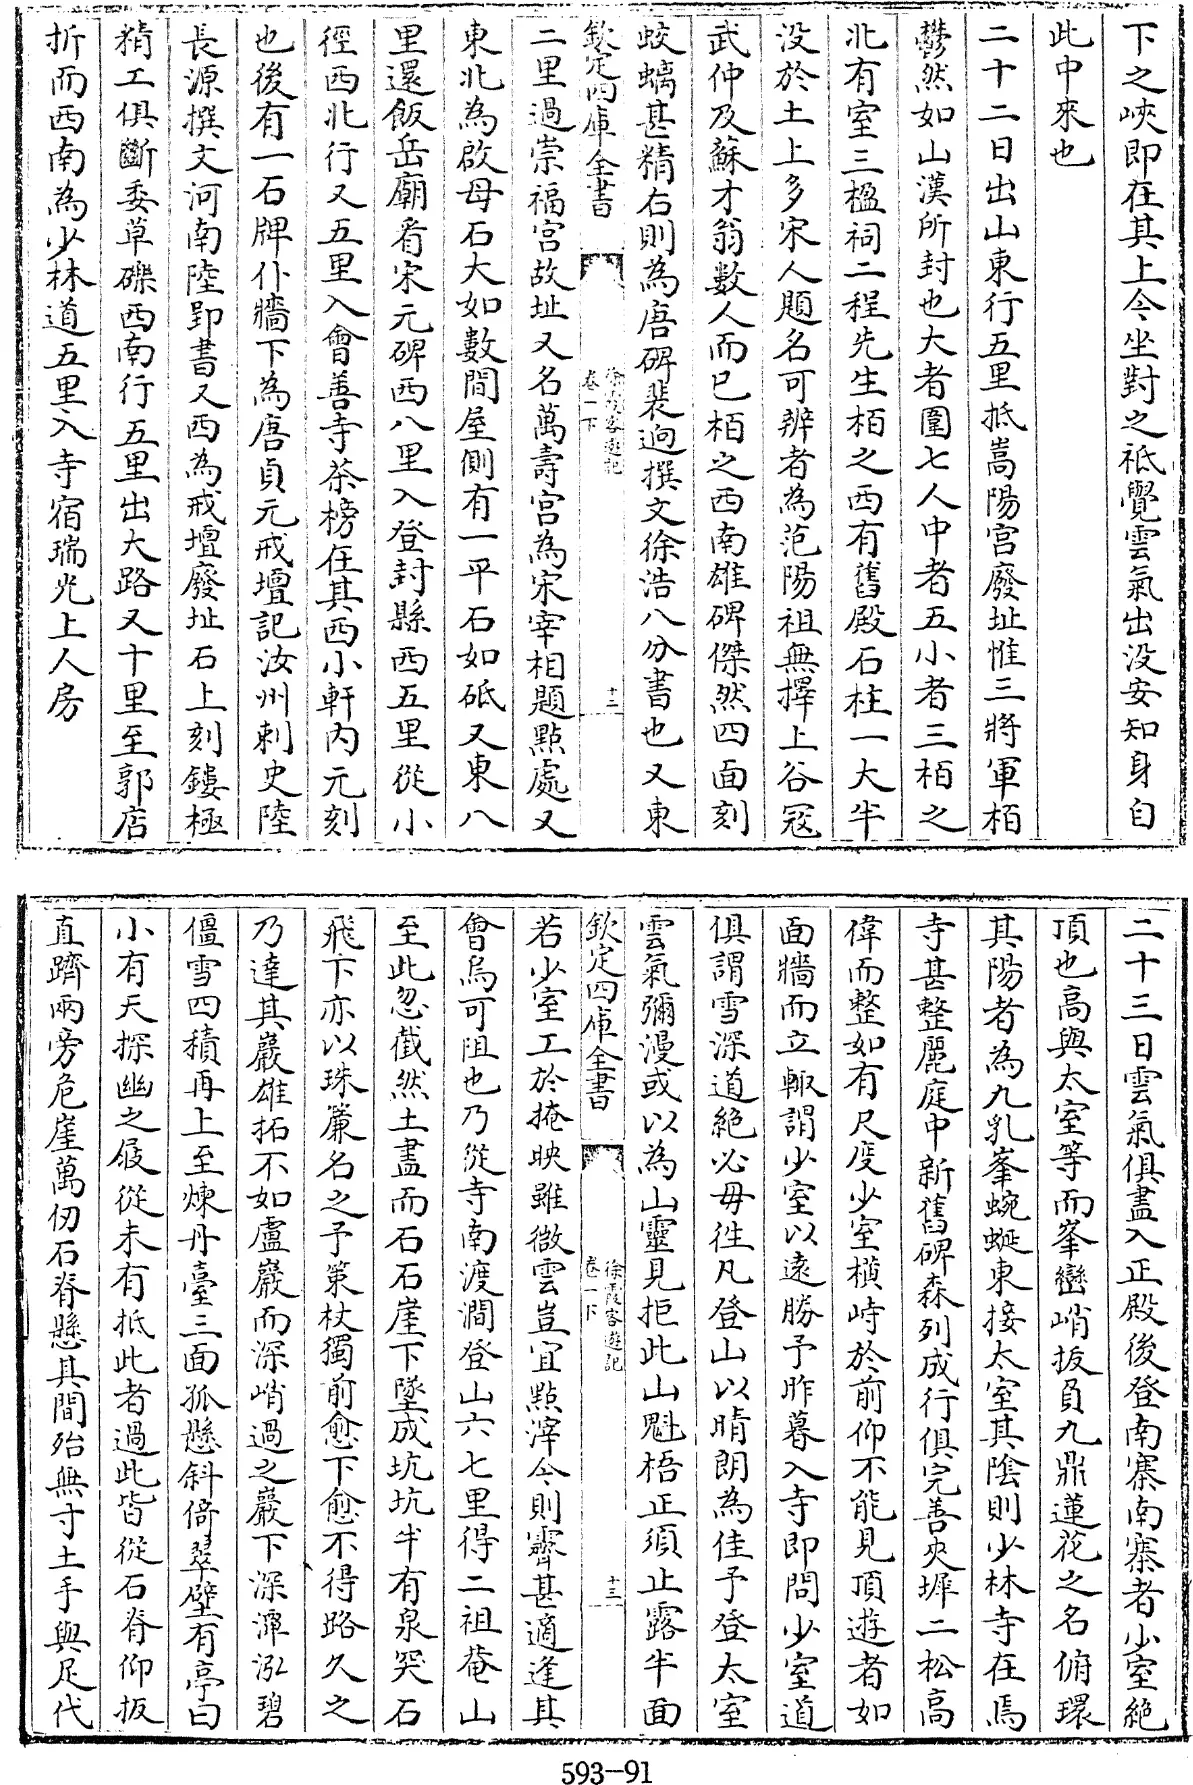 下之峽即在其上今坐對之祗覺雲氣出没安知身自
此中來也
二十二日出山東行五里抵嵩陽宫廢址惟三將軍柏
鬱然如山漢所封也大者圍七人中者五小者三柏之
北有室三楹祠二程先生柏之西有舊殿石柱一大半
没於土上多宋人題名可辨者為范陽祖無擇上谷寇
武仲及蘇才翁數人而已柏之西南雄碑傑然四面刻
蛟螭甚精右則為唐碑裴迥撰文徐浩八分書也又東
欽定四庫全書
徐霞客遊記
卷一下
十二
二里過崇福宫故址又名萬壽宫為宋宰相題點處又
東北為啟母石大如數間屋側有一平石如砥又東八
里還飯岳廟看宋元碑西八里入登封縣西五里從小
徑西北行又五里入會善寺茶榜在其西小軒内元刻
也後有一石牌仆牆下為唐貞元戒壇記汝州刺史陸
長源撰文河南陸郢書又西為戒壇廢址石上刻鏤極
精工俱斷委草礫西南行五里出大路又十里至郭店
折而西南為少林道五里入寺宿瑞光上人房
二十三日雲氣俱盡入正殿後登南寨南寨者少室絶
頂也高與太室等而峯巒峭拔負九鼎蓮花之名俯環
其陽者為九乳峯蜿蜒東接太室其陰則少林寺在焉
寺甚整麗庭中新舊碑森列成行俱完善夾墀二松高
偉而整如有尺度少室横峙於前仰不能見頂遊者如
面牆而立輙謂少室以遠勝予昨暮入寺即問少室道
俱謂雪深道絶必毋徃凡登山以晴朗為佳予登太室
雲氣彌漫或以為山靈見拒此山魁梧正須止露半面
欽定四庫全書
徐霞客遊記
卷一下
十三
若少室工於掩映雖微雲豈宜點滓今則霽甚適逢其
會烏可阻也乃從寺南渡澗登山六七里得二祖菴山
至此忽截然土盡而石石崖下墜成坑坑半有泉突石
飛下亦以珠簾名之予策杖獨前愈下愈不得路久之
乃達其巖雄拓不如盧巖而深峭過之巖下深潭泓碧
僵雪四積再上至煉丹臺三面孤懸斜倚翠壁有亭曰
小有天探幽之屐從未有抵此者過此皆從石脊仰扳
直躋兩旁危崖萬仞石脊懸其間殆無寸土手與足代
593-91